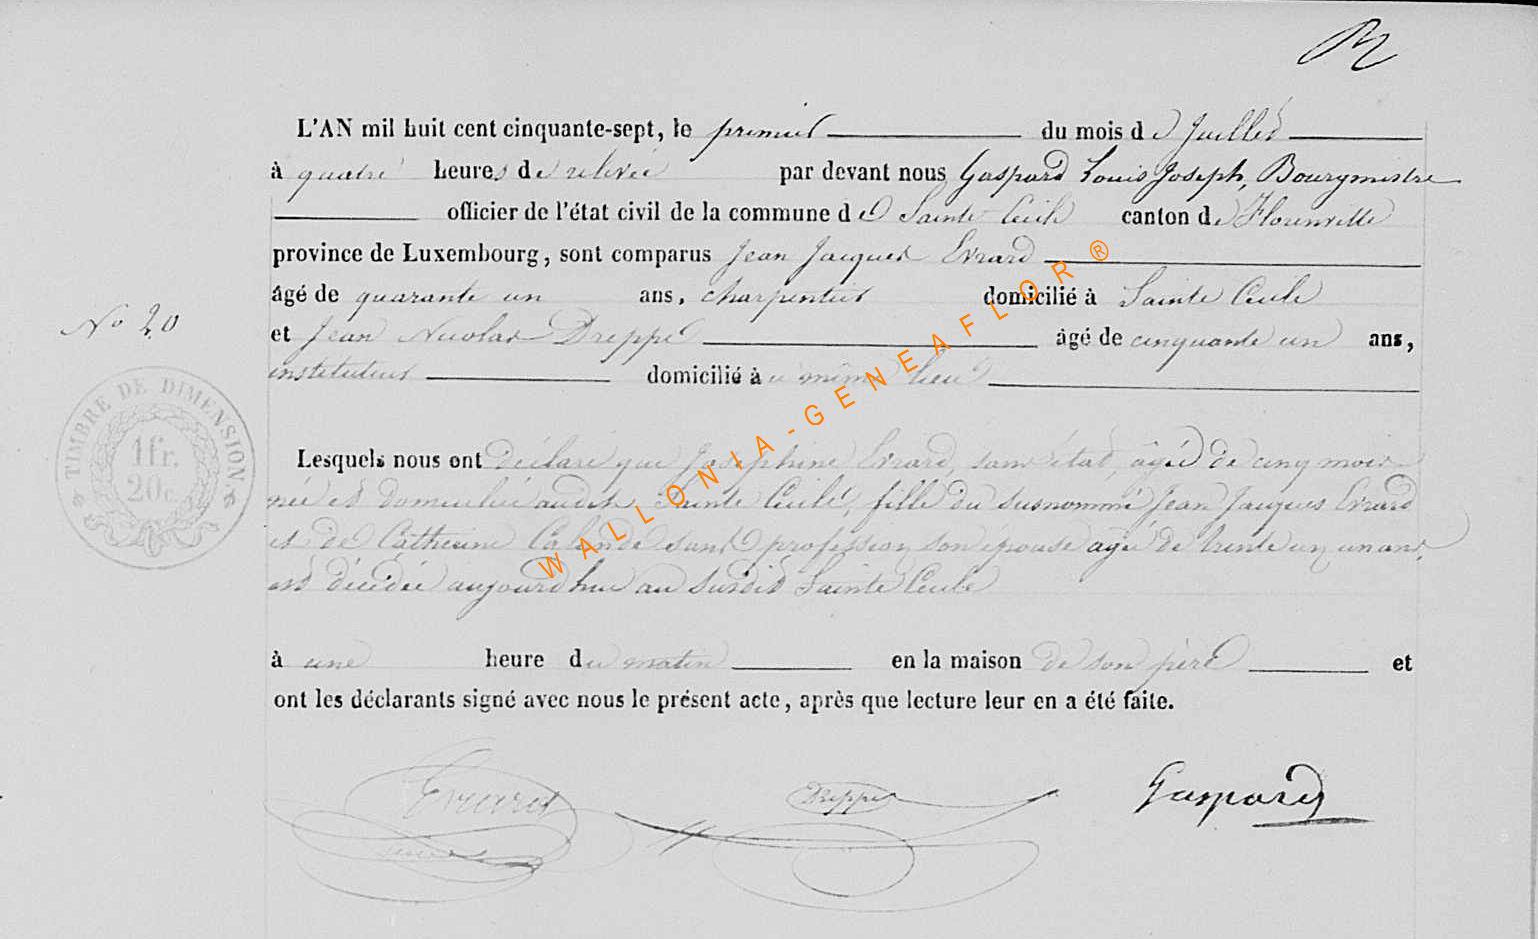 L'AN mil huit cent cinquante-sept, le premier du mois de Juillet
à quatre heures de relevée par devant nous Gaspard Louis Joseph, Bourgmestre
officier de l'état civil de la commune de Sainte Cecile canton de Florenville
province de Luxembourg, sont comparus Jean Jacques Evrard
âgé de quarante un ans, charpentier domicilié à Sainte Cecile
No 20
et Jean Nicolas Dreppe âgé de cinquante un ans,
instituteur domicilié au même lieu
TIMBRE DE DIMENSION
1 fr.
20 c.
Lesquels nous ont déclaré que Josephine Evrard, sans état, âgée de cinq mois
née et domiciliée audit Sainte Cecile, fille du susnommé Jean Jacques Evrard
et de Catherine sans profession son épouse agée de trente un ans,
est décédée aujourd'hui au susdit Sainte Cecile
à une heure du matin en la maison de son père et
ont les déclarants signé avec nous le présent acte, après que lecture leur en a été faite.
Evrard Dreppe Gaspard
WALLONIA-GENEAFLOR®